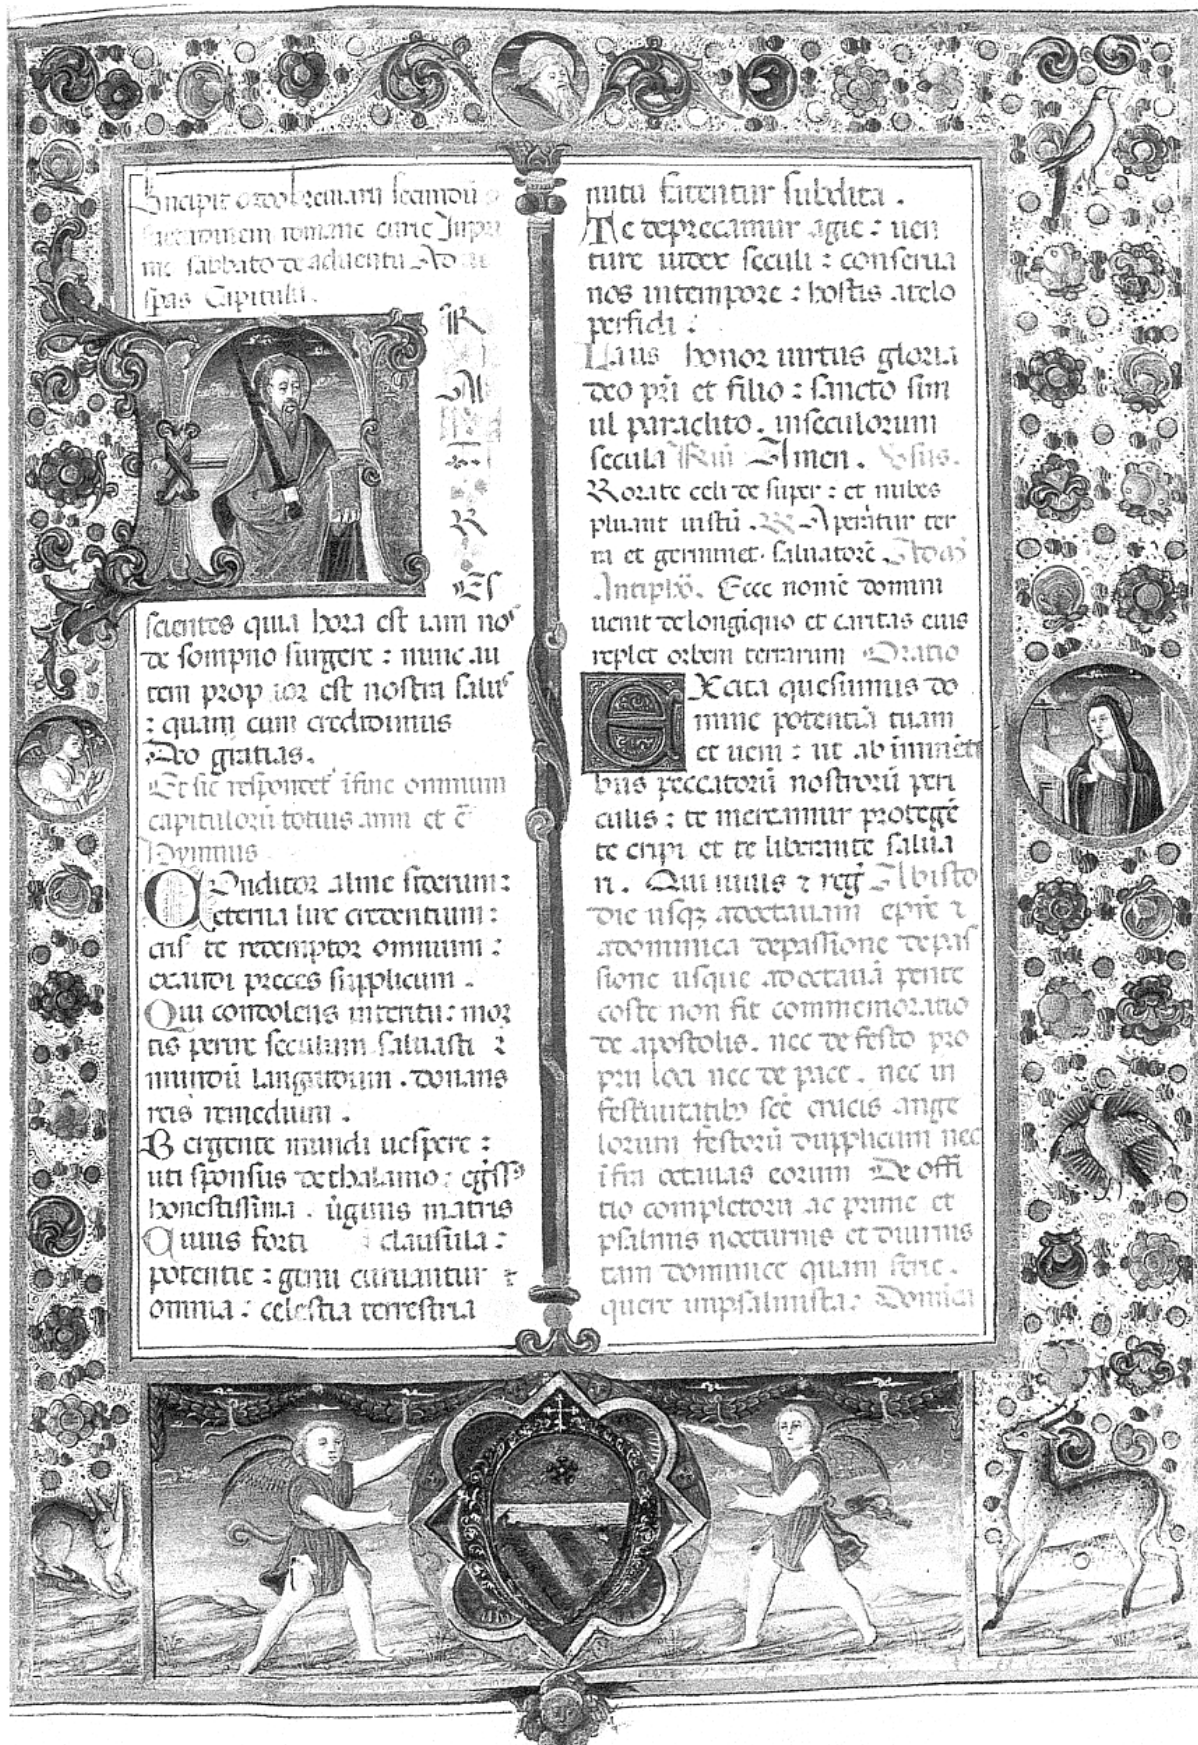 Incipit ordo breviarii secundũ
romane curie In pri
mo sabbato de adventu Ad ve
spas Capitulũ.
FR
A
R
ES
scientes quia hora est iam nos
de sompno surgere : nunc au
tem propior est nostra salus
: quam cum credidimus
Deo gratias.
Et sic respondet ĩ fine omnium
capitulorũ totius anni et c̃
Hymnus
COnditor alme siderum :
eterna lux credentium :
cris te redemptor omnium :
exaudi preces supplicum .
Qui condolens interitu : mor
tis perire seculum . salvasti :
mundũ languidum . donans
reis remedium .
Vergente mundi vespere :
uti sponsus de thalamo : egss
honestissima . ũginis matris
Cuius forti clausula :
potentie : genu curvantur :
omnia : celestia terrestria
nutu fatentur subdita .
Te deprecamur agie : ven
ture iudex seculi : conserva
nos in tempore : hostis a telo
perfidi :
Laus honor virtus gloria
deo pri et filio : sancto sim
ul paraclito . in seculorum
secula Amen . Vsus.
Rorate celi de super : et nubes
pluant iustũ . R Aperiatur ter
ra et germinet . salvatorẽ
Antiphõ. Ecce nomẽ domini
venit de longiquo et caritas eius
replet orbem terrarum Oratio
EXcita quesumus do
mine potentiã tuam
et veni : ut ab immĩnẽti
bus peccatorũ nostrorũ peri
culis : te mereamur protegẽ
te eripi et te liberante salva
ri . Qui vivis ⁊ reg̃ Ab isto
die usqʒ ad octavam epĩe ⁊
a dominica de passione de pas
sione usque ad octavã pente
coste non fit commemoratio
de apostolis . nec de festo pro
prii loci nec de pace . nec in
festivitatibʒ scẽ crucis ange
lorum festorũ dupplicum nec
ĩfra octavas eorum De offi
tio completorii ac prime et
psalmis nocturnis et diurnis
tam dominice quam ferie .
quere in psalmista : Domĩca